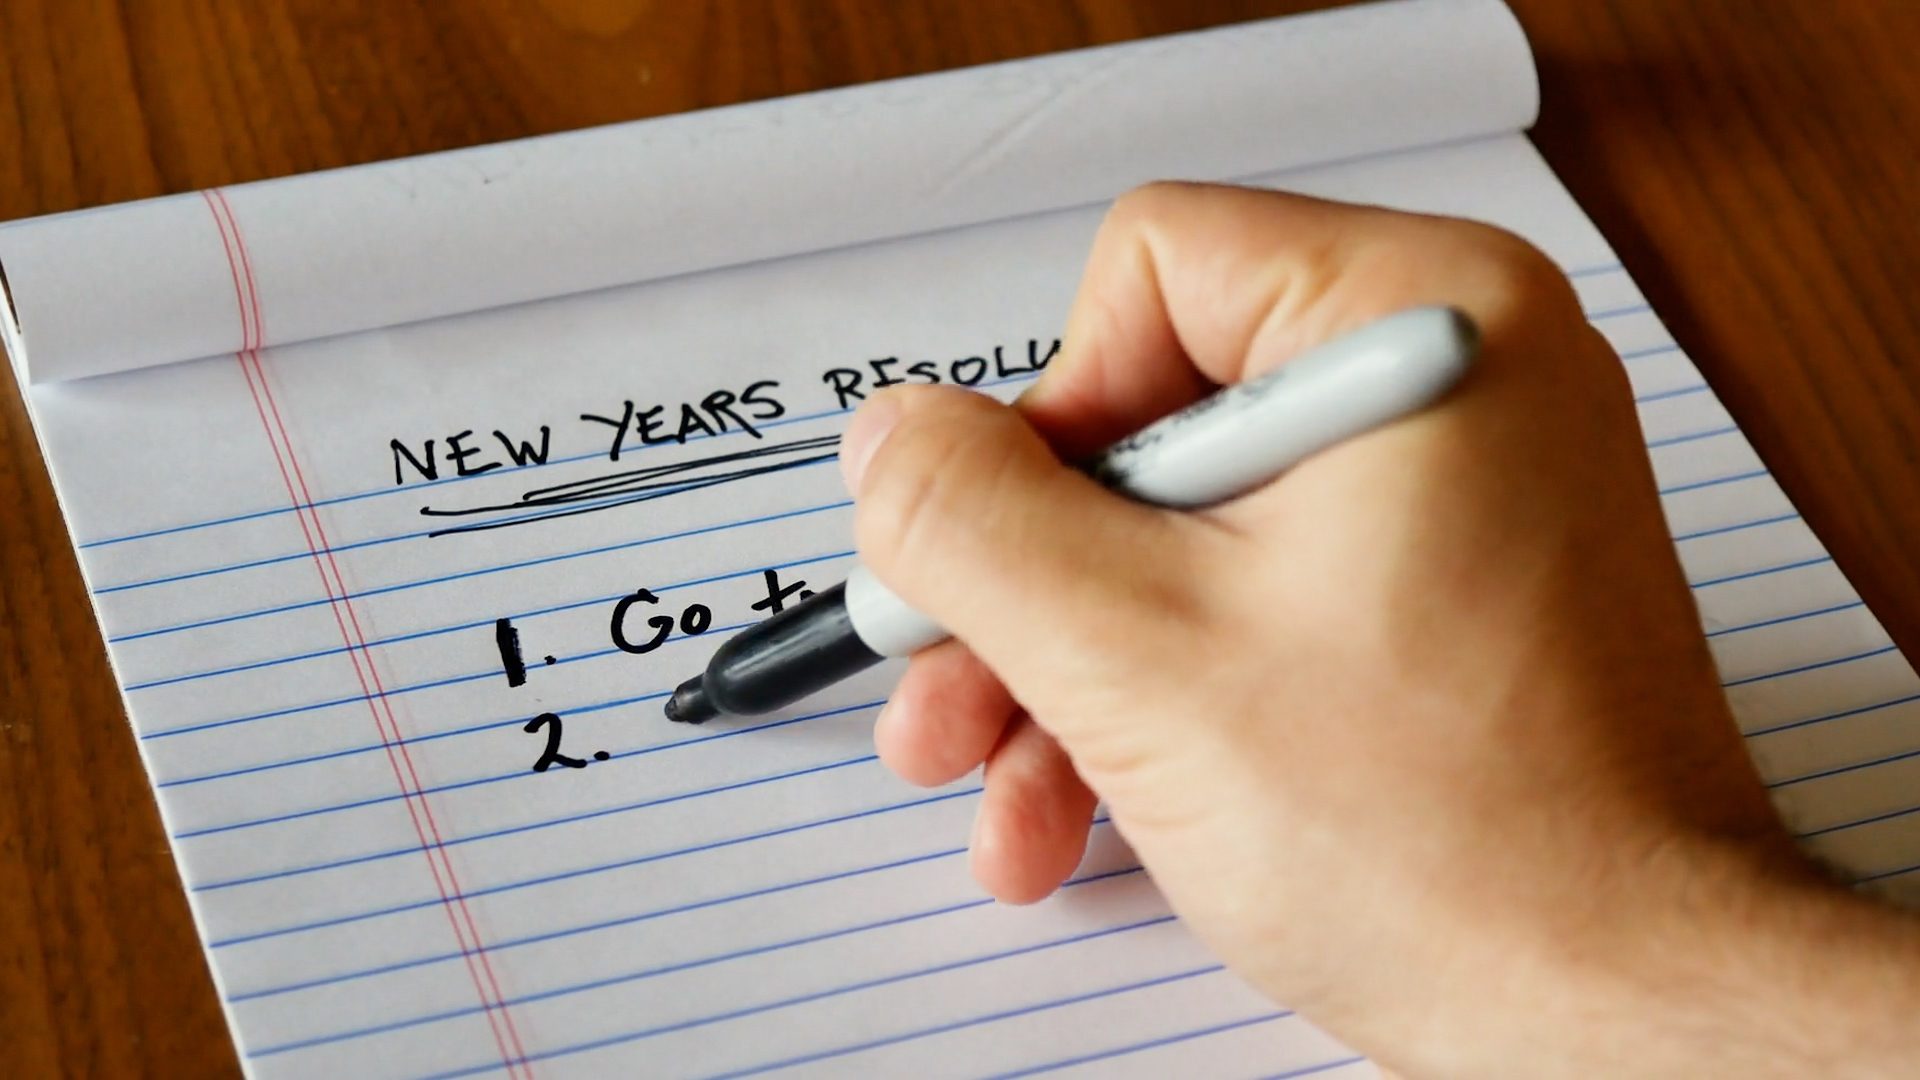 NEW YEARS RESOLU
1. Go t
2.